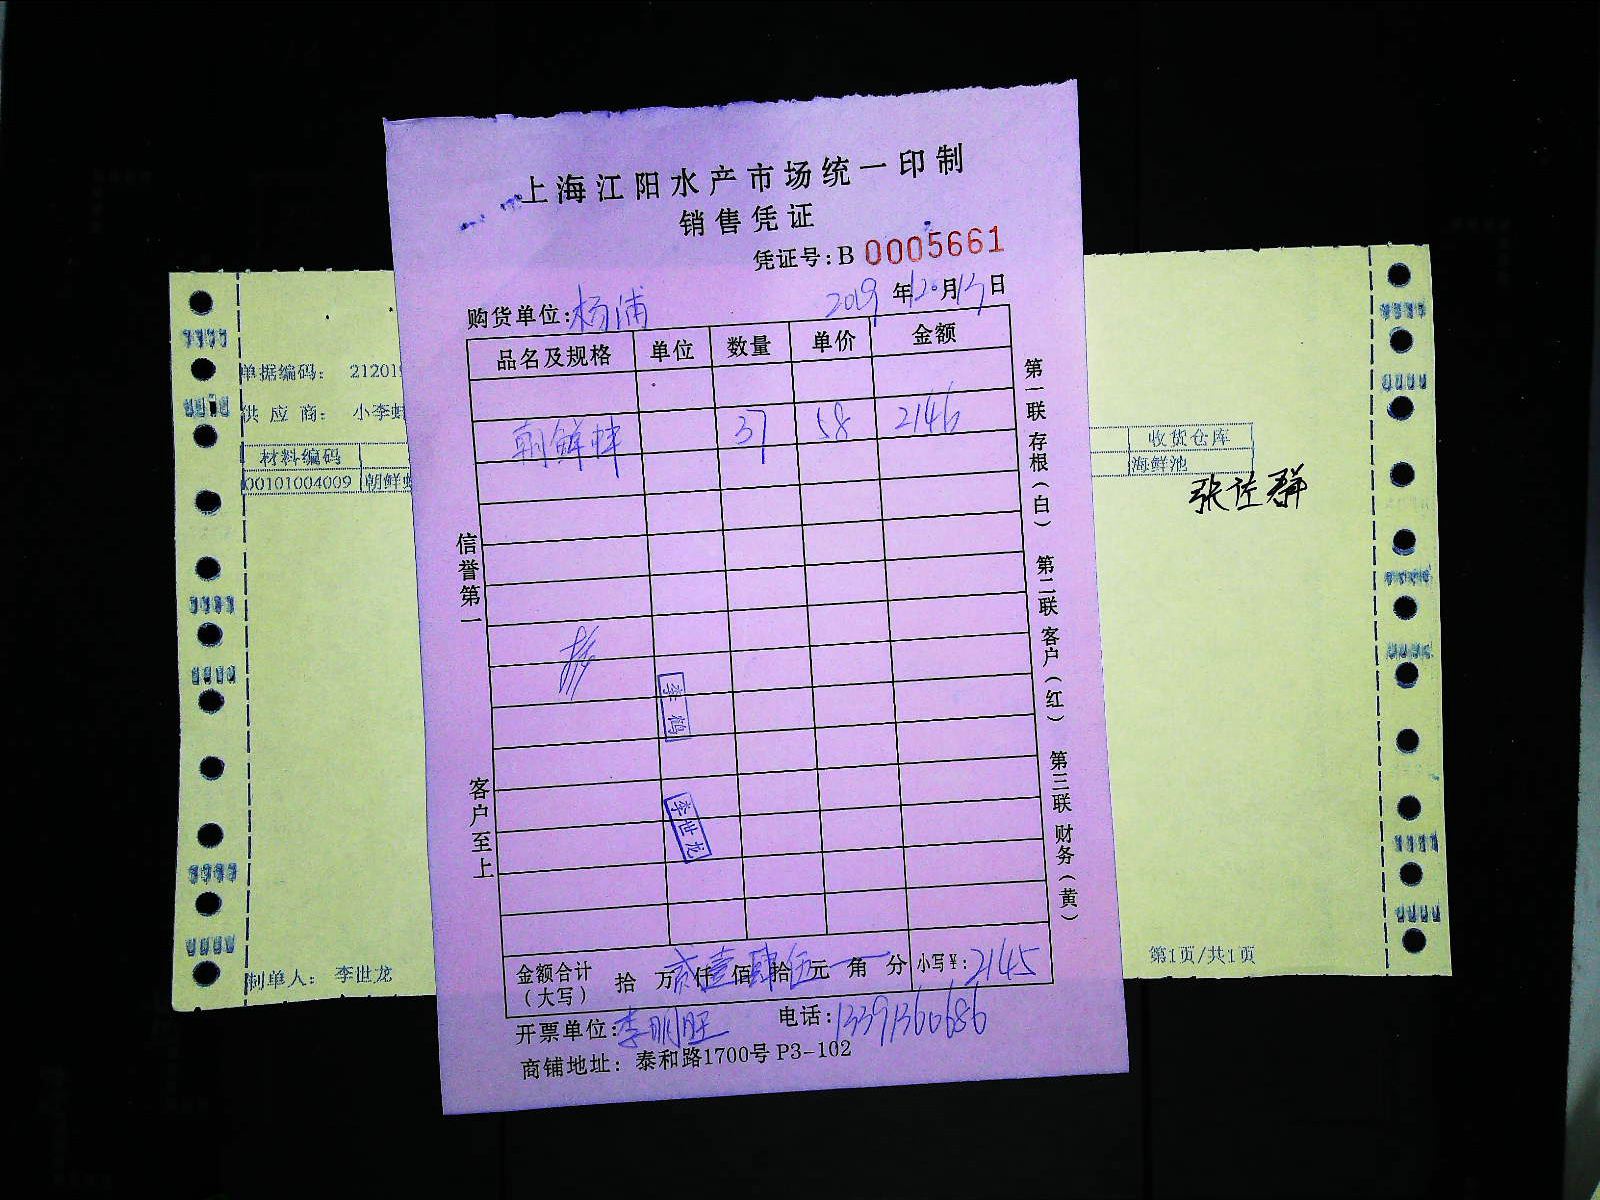 上海江阳水产市场统一印制
销售凭证
凭证号:B 0005661
购货单位:杨浦 2019年12月17日
品名及规格 单位 数量 单价 金额
朝鲜蚌 37 58 2146
李鹤
李世龙
金额合计(大写) 拾 万 贰仟壹佰肆拾伍元 角 分 小写¥:2145
开票单位:李明旺 电话:13391360686
商铺地址:泰和路1700号 P3-102
信誉第一
客户至上
第一联 存根(白) 第二联 客户(红) 第三联 财务(黄)
单据编码: 21201
供应商: 小李
材料编码
00101004009 朝鲜
制单人: 李世龙
收货仓库
海鲜池
第1页/共1页